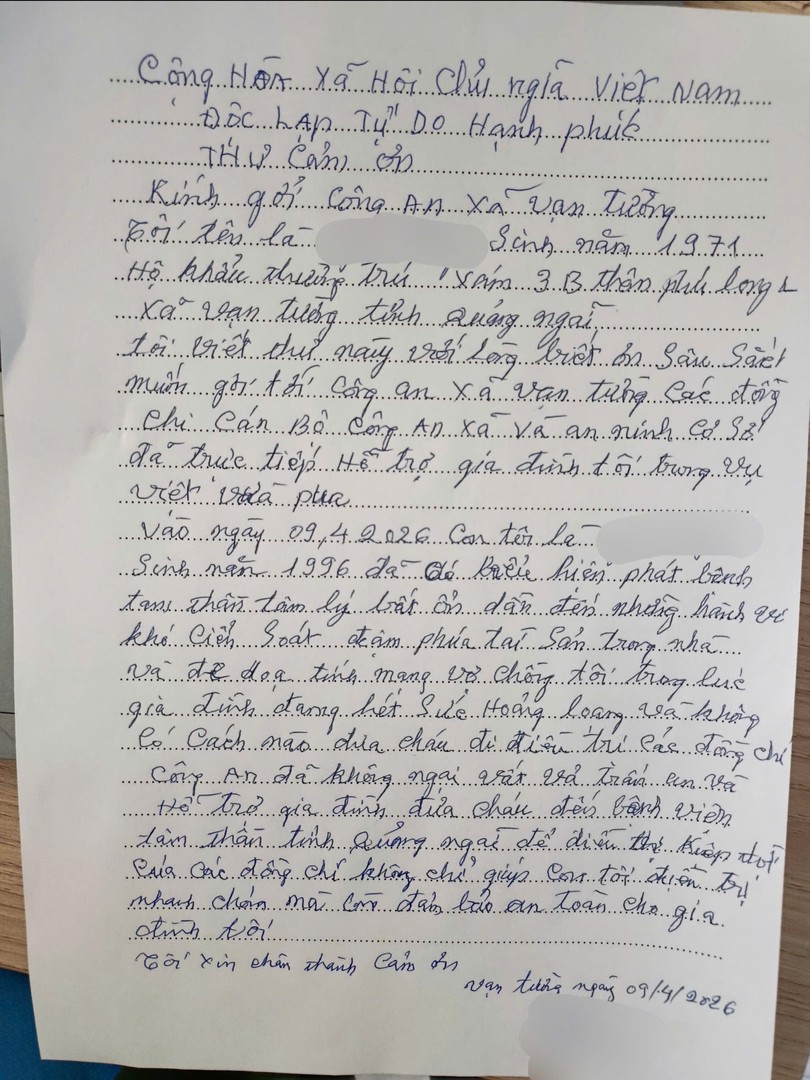 Cộng Hòa Xã Hội Chủ ngĩa Việt Nam
Độc Lạp Tự Do Hạnh phúc
THƯ Cảm ƠN
Kính gởi Công An Xã vạn tường
Tôi tên là Sinh năm 1971
Hộ khẩu thường trú xóm 3B thôn phú long 2
xã vạn tường tỉnh Quảng ngãi
tôi viết thư này với lòng biết ơn Sâu Sắc
muốn gởi tới Công an xã vạn tường các đồng
chi Cán Bộ Công An xã và an ninh cơ Sở
đã trực tiếp Hỗ trợ gia đình tôi trong vụ
việt vừa pua
Vào ngày 09,4 2026 Con tôi là
Sinh năm 1996 đã có biểu hiện phát bệnh
tam thần tâm lý bất ổn dẫn đến những hành vi
khó Ciển Soát đậm phúa tai Sản trong nhà
và đe doạ tính mang vợ chồng tôi trong lúc
gia đình đang hết Sức Hoảng loang và không
Có Cách nào đưa cháu đi điều tri Các đồng chí
Công An đã không ngai vất vả trấn an và
Hỗ trợ gia đình đưa cháu đến bệnh viện
tâm thần tỉnh Quảng ngai để điều trị Kiệp thời
Của các đồng chí không chỉ giúp Con tôi điều trị
nhanh chón mà Còn đảm bảo an toàn cho gia
đình tôi
Tôi xin chân thành Cảm ơn
vạn tường ngày 09/4/2026